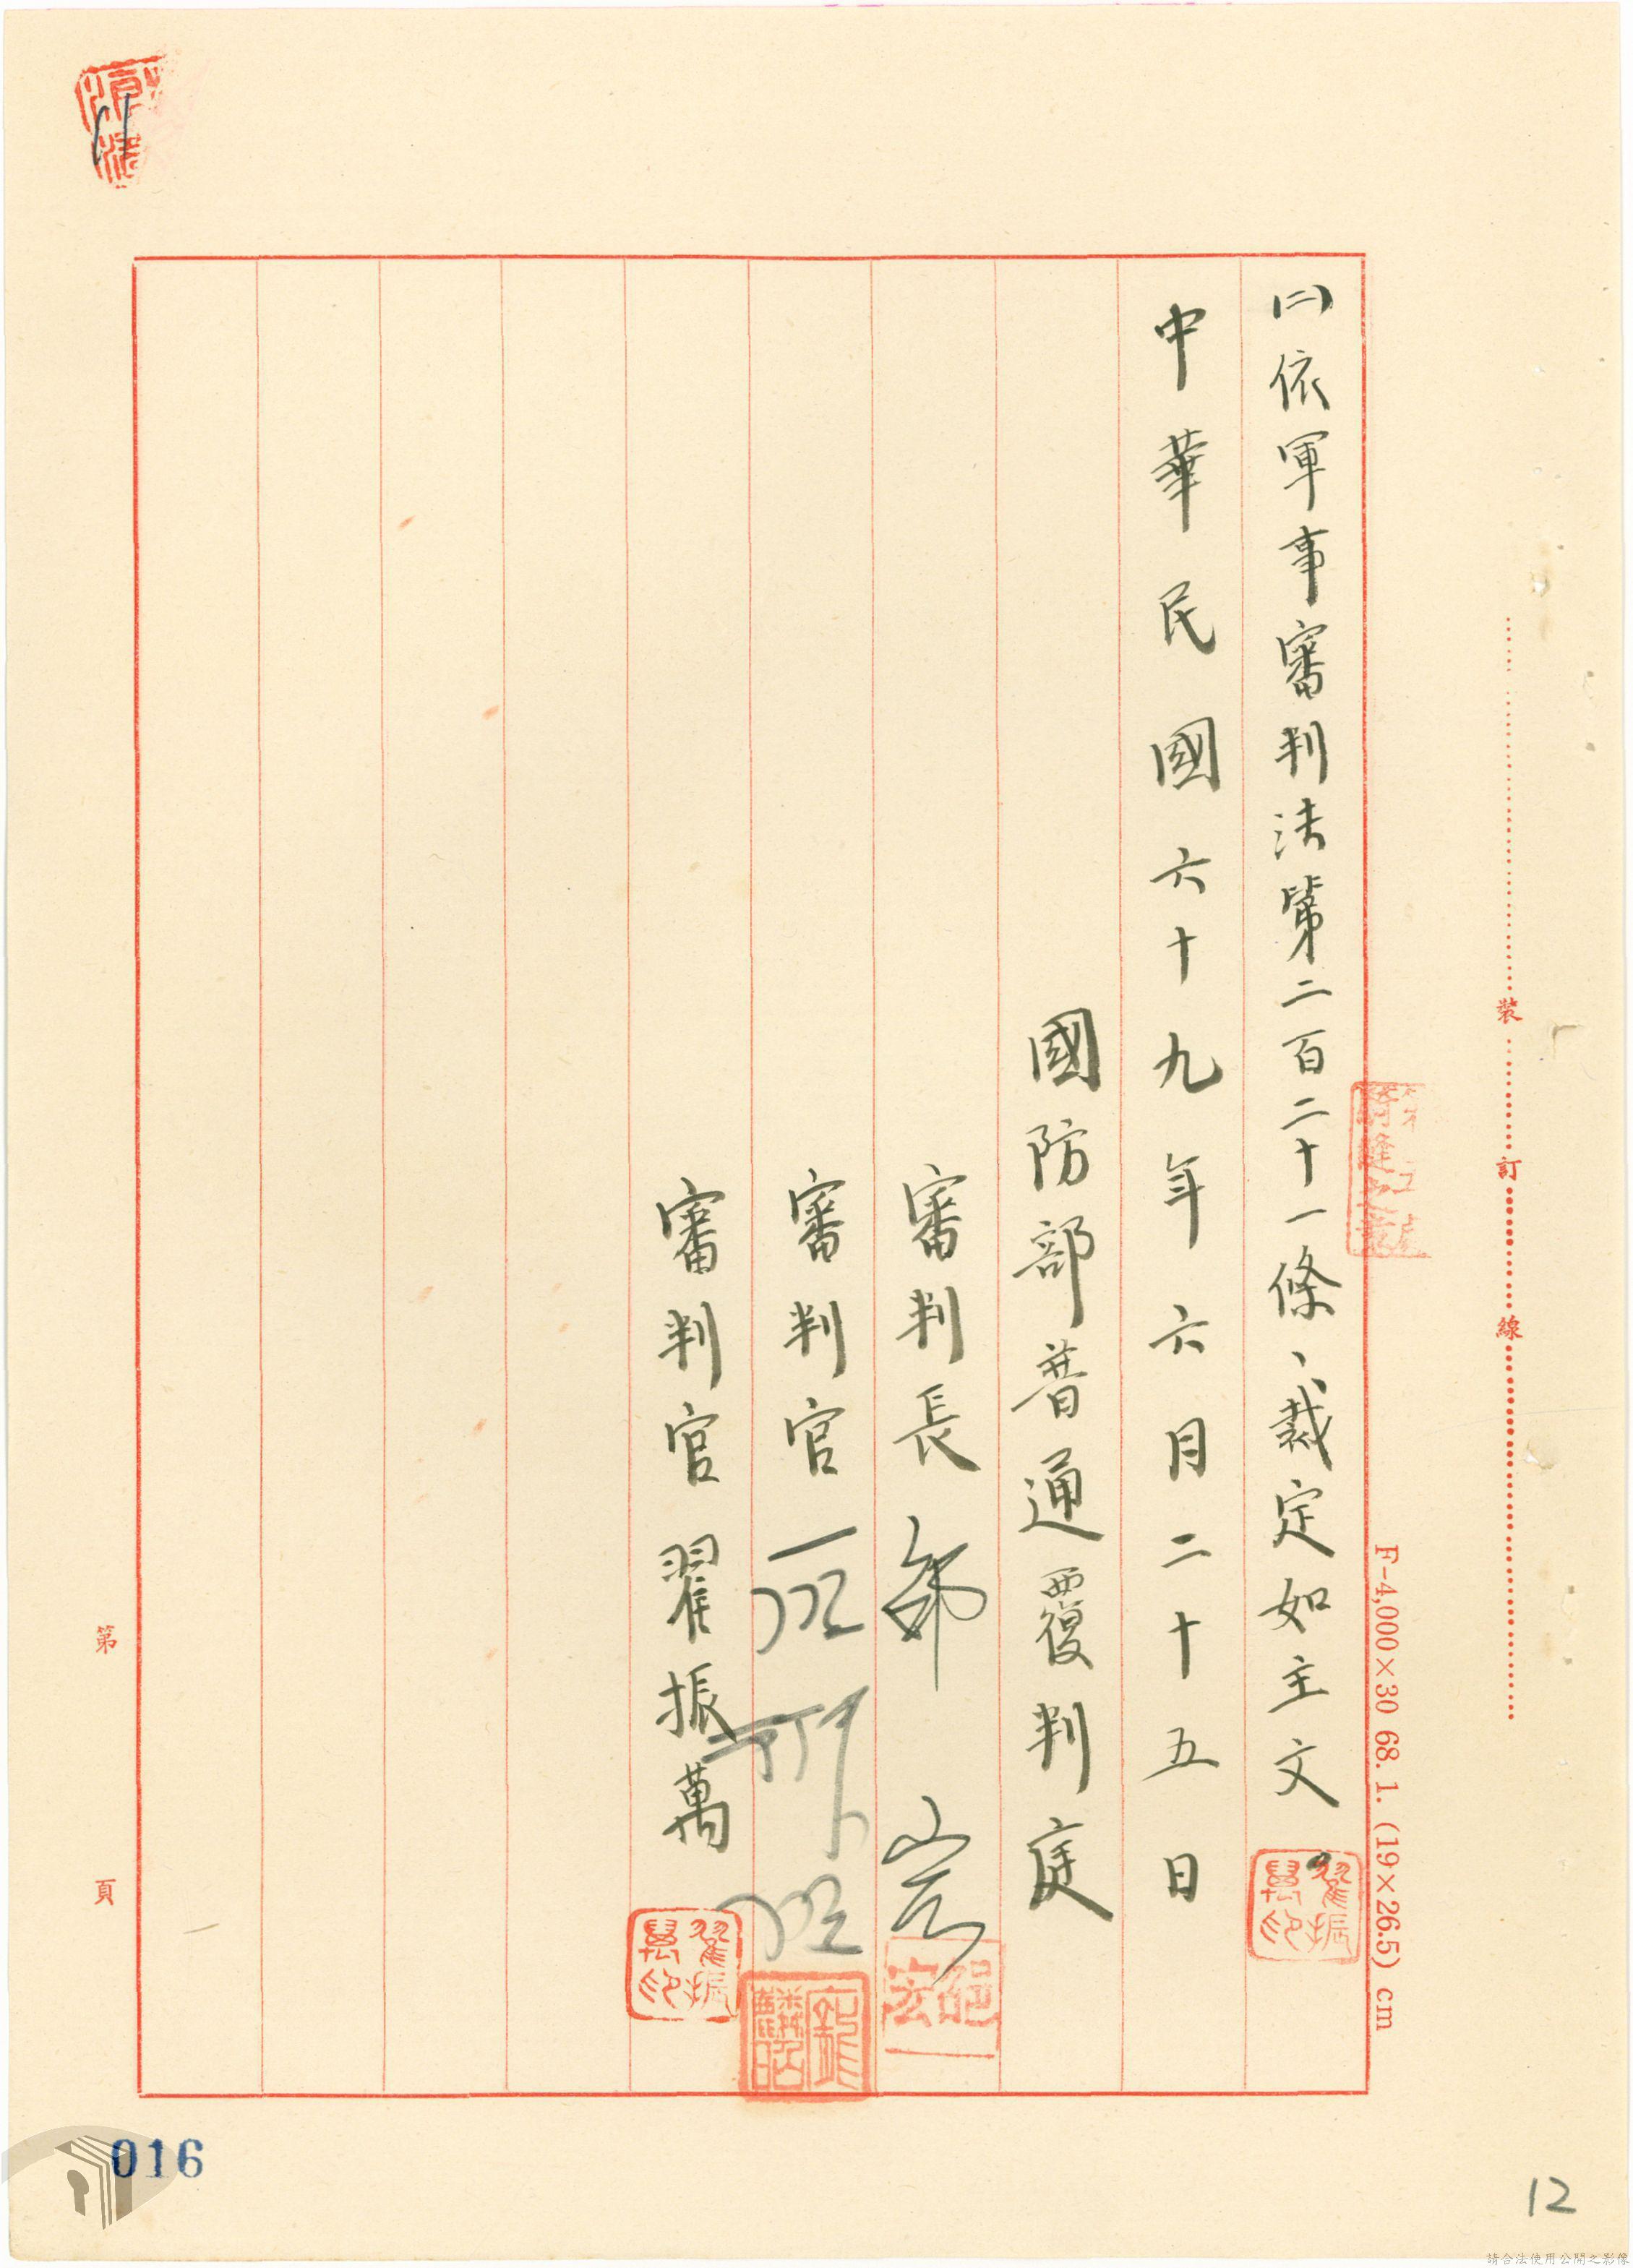 ㈡依軍事審判法第二百二十一條、裁定如主文。
中華民國六十九年六月二十五日
國防部普通覆判庭
審判長
審判官
審判官翟振萬
翟振萬印
翟振萬印
裝
訂
線
F-4,000×30 68.1.(19×26.5) cm
第
頁
016
12
請合法使用公開之影像